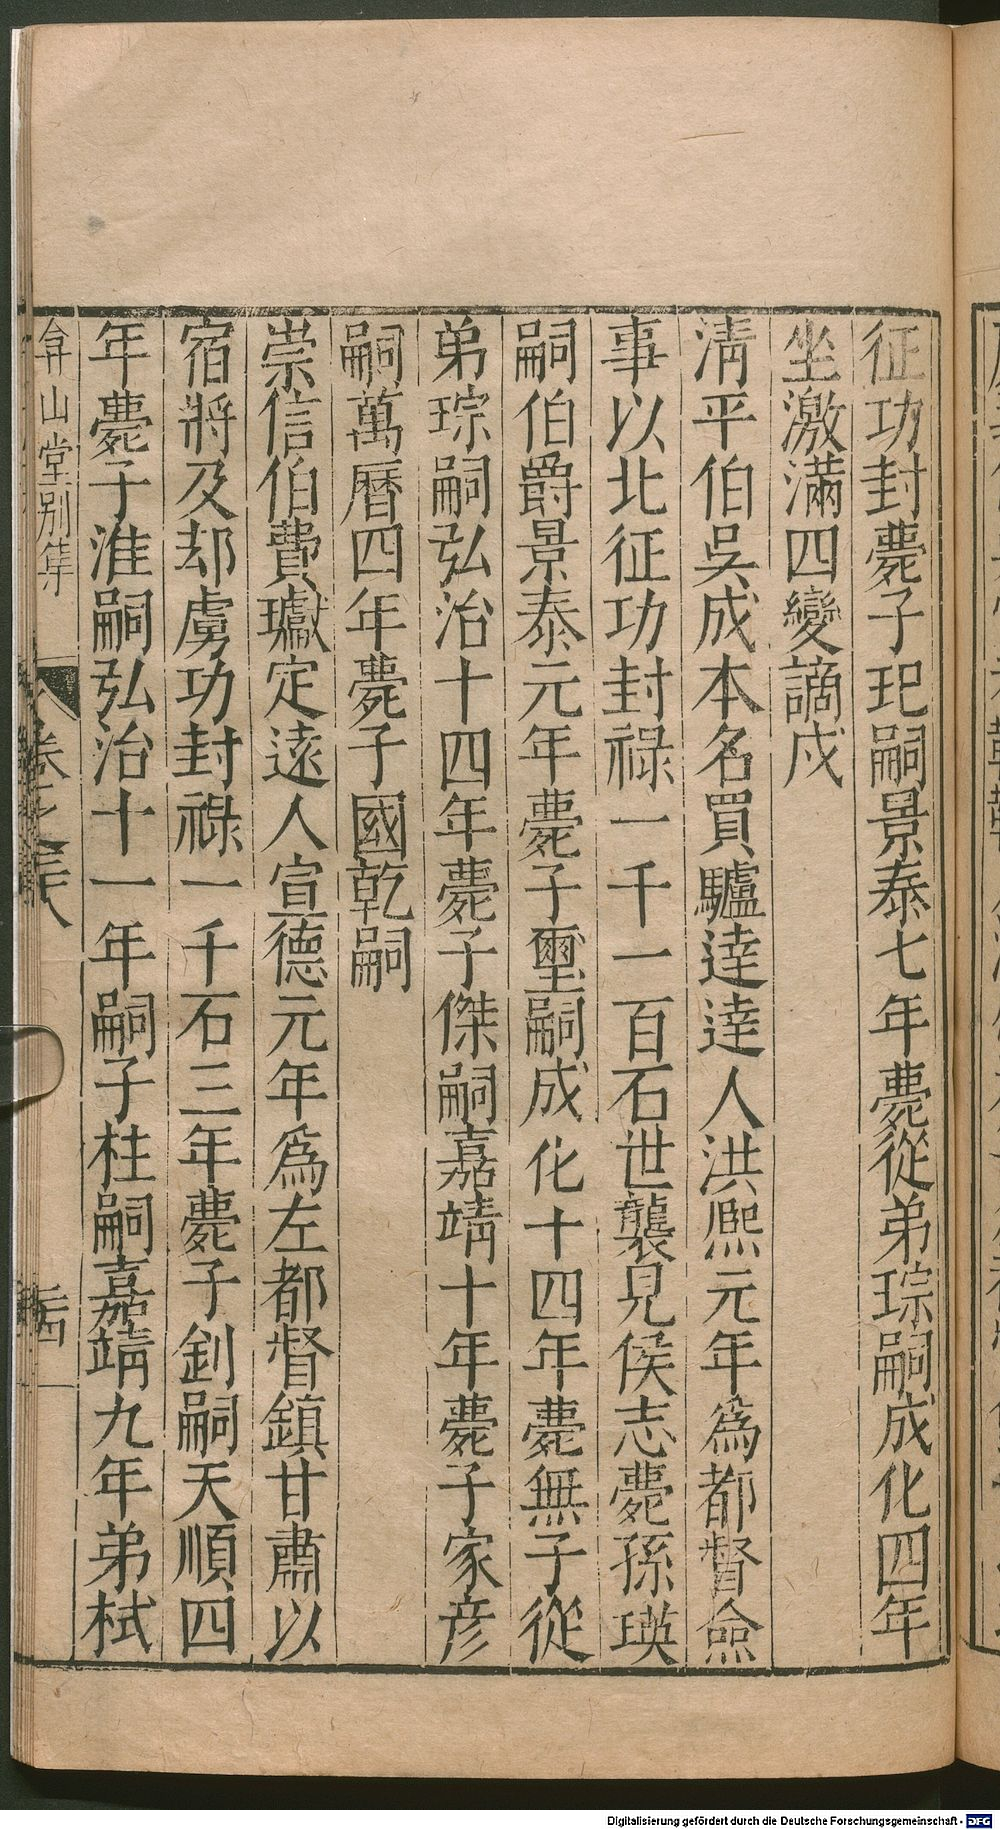 征功封薨子玘嗣景泰七年薨從弟琮嗣成化四年
坐激滿四變謫戍
清平伯吳成本名買驢達達人洪熈元年為都督僉
事以北征功封祿一千一百石世襲見侯志薨孫瑛
嗣伯爵景泰元年薨子璽嗣成化十四年薨無子從
弟琮嗣弘治十四年薨子傑嗣嘉靖十年薨子家彦
嗣萬曆四年薨子國乾嗣
崇信伯費瓛定遠人宣德元年為左都督鎮甘肅以
宿將及却虜功封祿一千石三年薨子釗嗣天順四
年薨子淮嗣弘治十一年嗣子柱嗣嘉靖九年弟栻
弇山堂別集
Digitalisierung gefördert durch die Deutsche Forschungsgemeinschaft - DFG